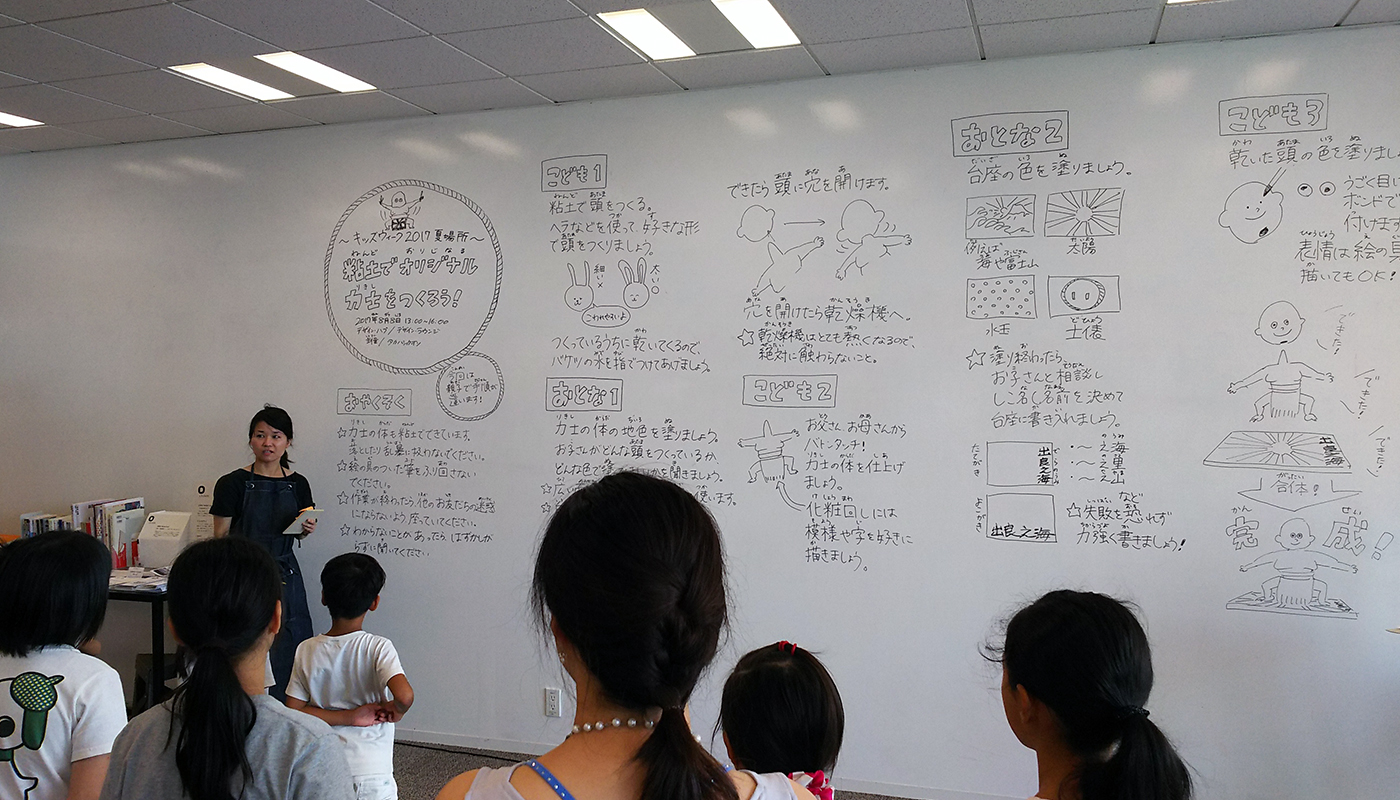 ～キッズウィーク2017夏場所～
粘土でオリジナル
力士をつくろう！
2017年8月8日 13:00～16:00
デザインハブ／デザインラウンジ
今回は
親子で手順が
違います！
おやくそく
☆力士の体も粘土でできています。
落としたり乱暴に扱わないでください。
☆絵の具のついた筆をふり回さない
でください。
☆作業が終わったら、他のお友だちの迷惑
にならないよう、座っていてください。
☆わからないことがあったら、はずかしが
らずに聞いてください
こども1
粘土で頭をつくる。
ヘラなどを使って、好きな形
で頭をつくりましょう。
細い×
太い○
こわれやすいよ
つくっているうちに乾いてくるので、
バケツの水を指でつけてあげましょう。
おとな1
力士の体の地色を塗りましょう。
お子さんがどんな頭をつくっているか、
どんな色で
を聞きましょう。
使います。
できたら頭に穴を開けます。
穴を開けたら乾燥機へ。
☆乾燥機はとても熱くなるので、
絶対に触わらないこと。
こども2
お父さん、お母さんから
バトンタッチ！
力士の体を仕上げ
ましょう。
化粧回しには
模様や字を好きに
描きましょう。
おとな2
台座の色を塗りましょう。
例えば
海や富士山
太陽
水玉
土俵
☆塗り終わったら、
お子さんと相談し
しこ名(名前)を決めて
台座に書き入れましょう。
たてがき
出良之海
・～之海
・～之巣
・～之出
よこがき
出良之海
☆失敗を恐れず
力強く書きましょう！
こども3
乾いた頭の色を塗りまし
うごく目
ボンドで
付けます
表情は絵の具
描いてもOK！
できた！
できた！
できた！
出良之海
合体！
完成！